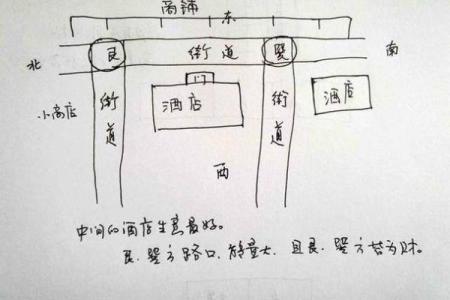 商铺
东
北
艮
街道
巽
南
门
小商店
街道
酒店
街道
酒店
西
中间的酒店生意最好。
艮、巽方路口,能量大,且艮、巽方皆为财。